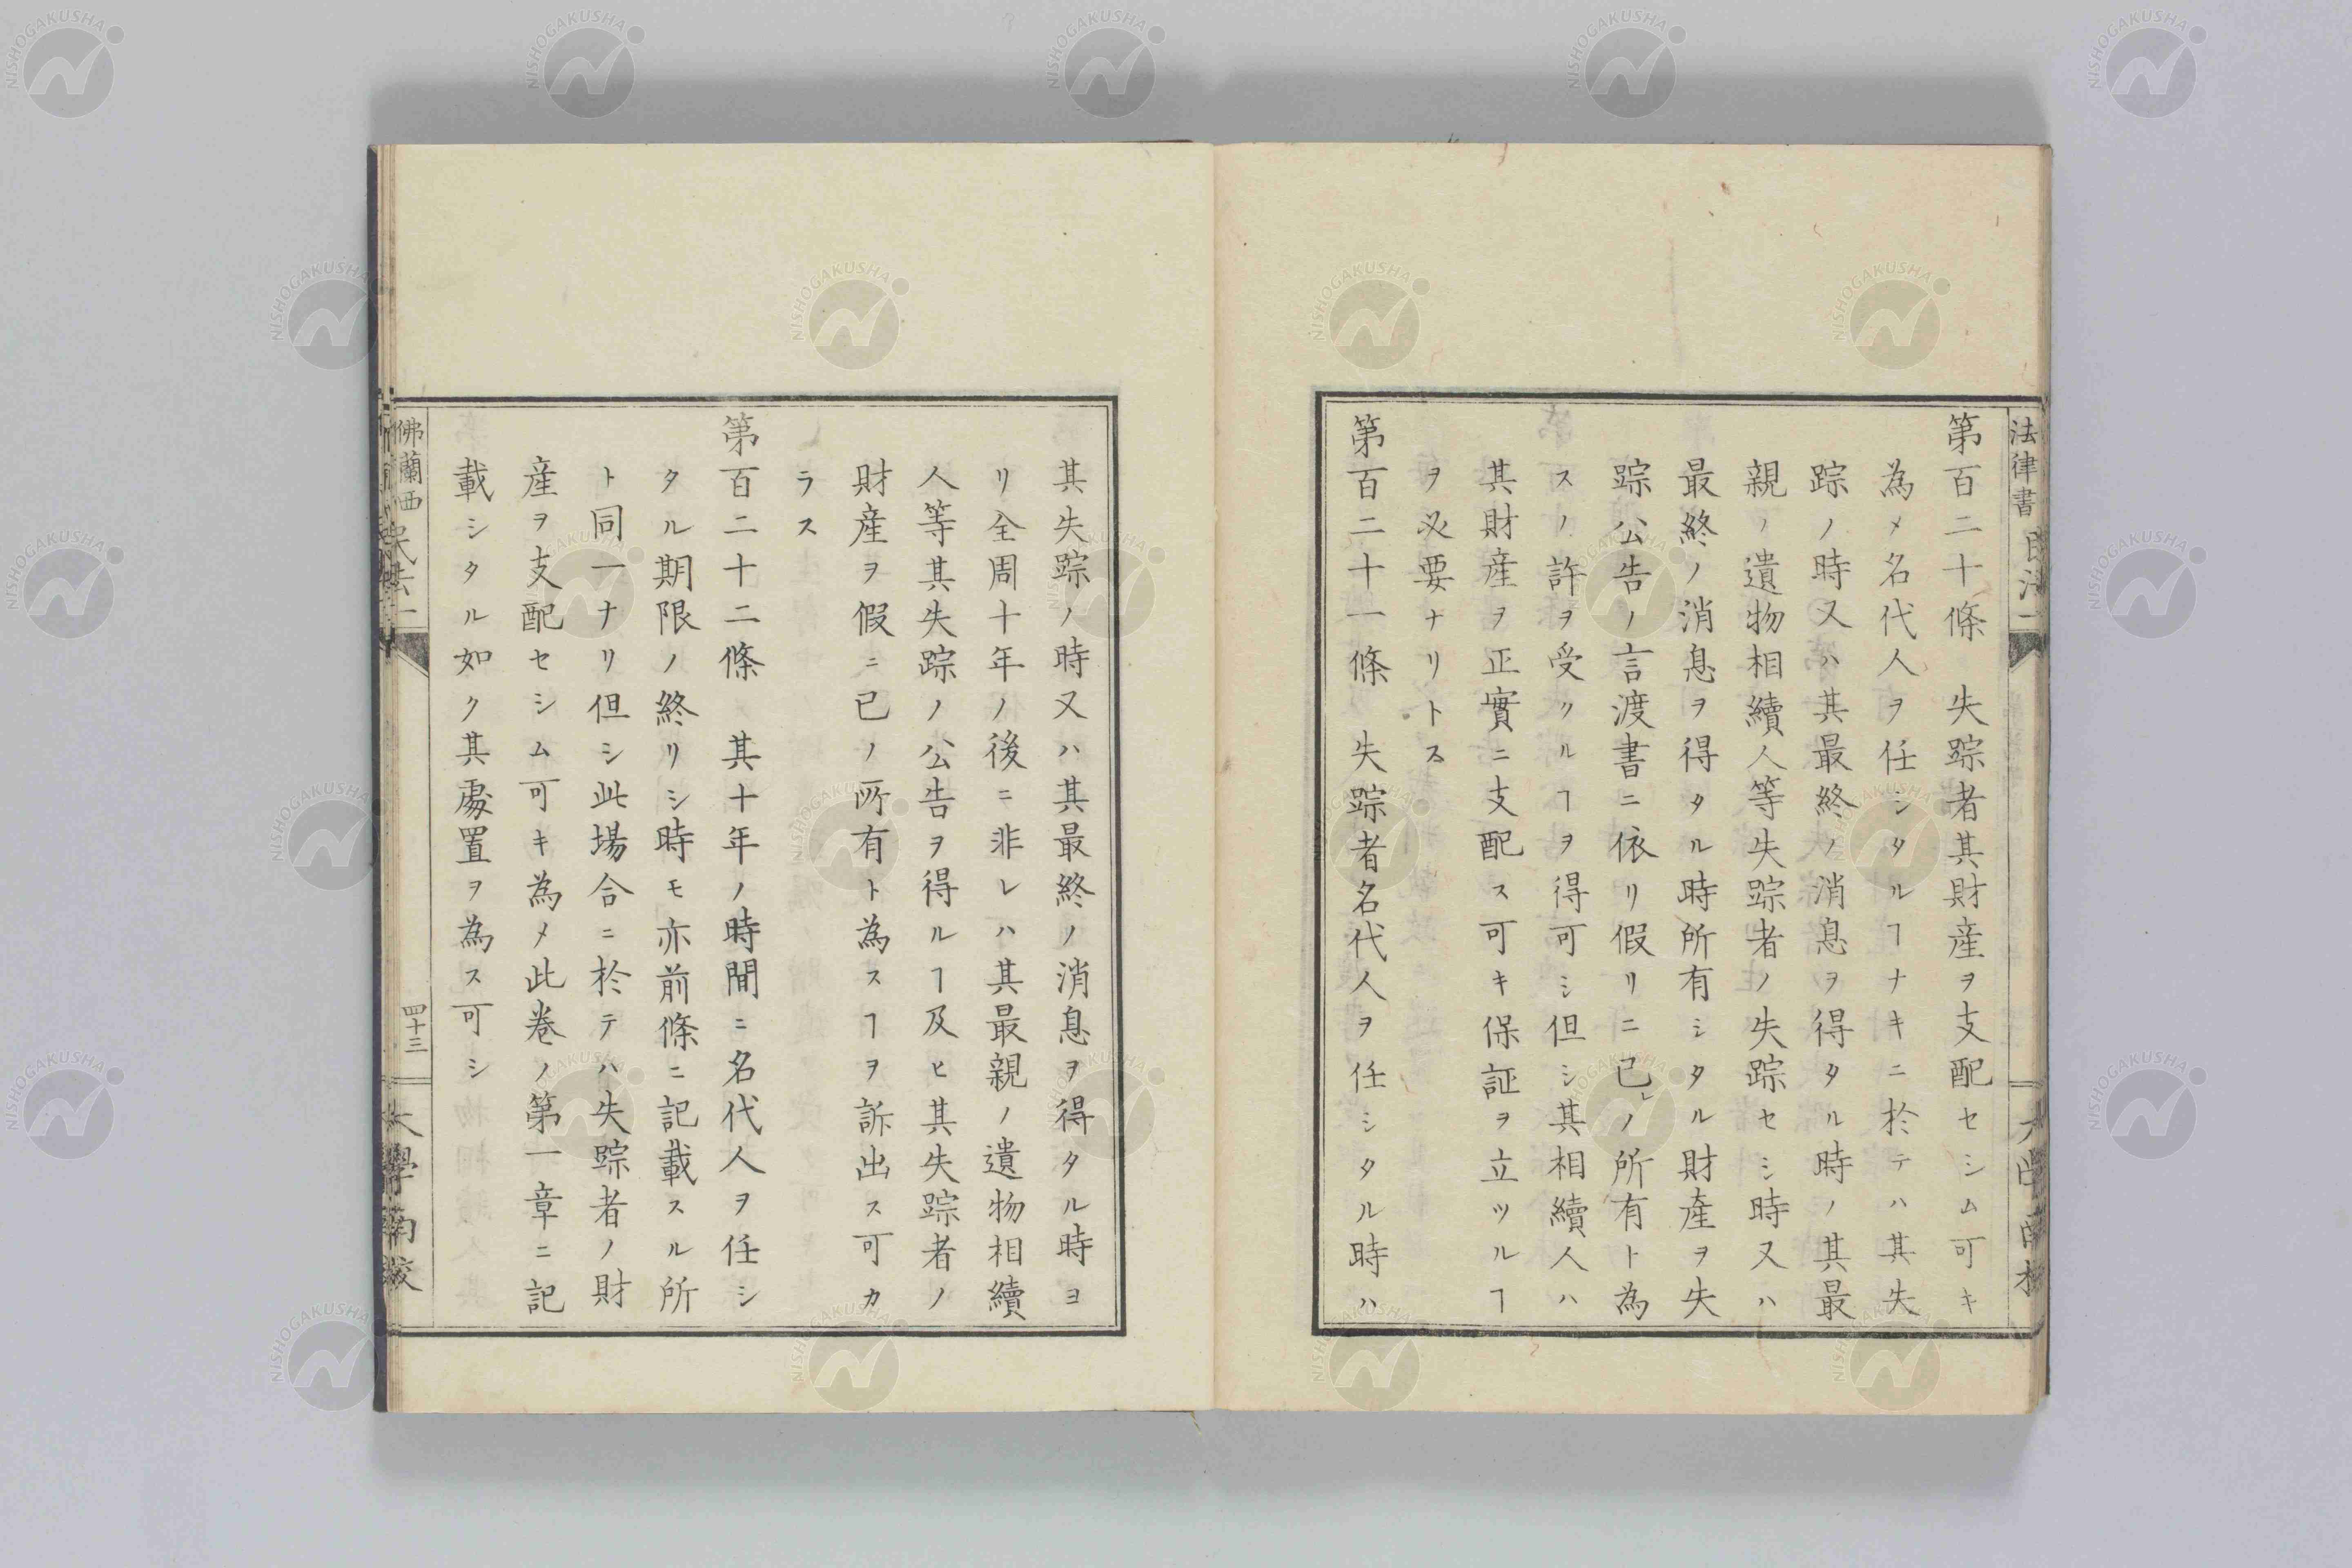 法律書 民法一
第百二十條 失踪者其財産ヲ支配セシム可キ
為メ名代人ヲ任シタルヿナキニ於テハ其失
踪ノ時又ハ其最終ノ消息ヲ得タル時ノ其最
親ノ遺物相續人等失踪者ノ失踪セシ時又ハ
最終ノ消息ヲ得タル時所有シタル財産ヲ失
踪公告ノ言渡書ニ依リ假リニ已レノ所有ト為
スノ許ヲ受クルヿヲ得可シ但シ其相續人ハ
其財産ヲ正實ニ支配ス可キ保証ヲ立ツルヿ
ヲ必要ナリトス
第百二十一條 失踪者名代人ヲ任シタル時ハ
其失踪ノ時又ハ其最終ノ消息ヲ得タル時ヨ
リ全周十年ノ後ニ非レハ其最親ノ遺物相續
人等其失踪ノ公告ヲ得ルヿ及ヒ其失踪者ノ
財産ヲ假ニ已ノ所有ト為スヿヲ訴出ス可カ
ラス
第百二十二條 其十年ノ時間ニ名代人ヲ任シ
タル期限ノ終リシ時モ亦前條ニ記載スル所
ト同一ナリ但シ此場合ニ於テハ失踪者ノ財
産ヲ支配セシム可キ為メ此巻ノ第一章ニ記
載シタル如ク其處置ヲ為ス可シ
佛蘭西
四十三
大學南校
NISHOGAKUSHA